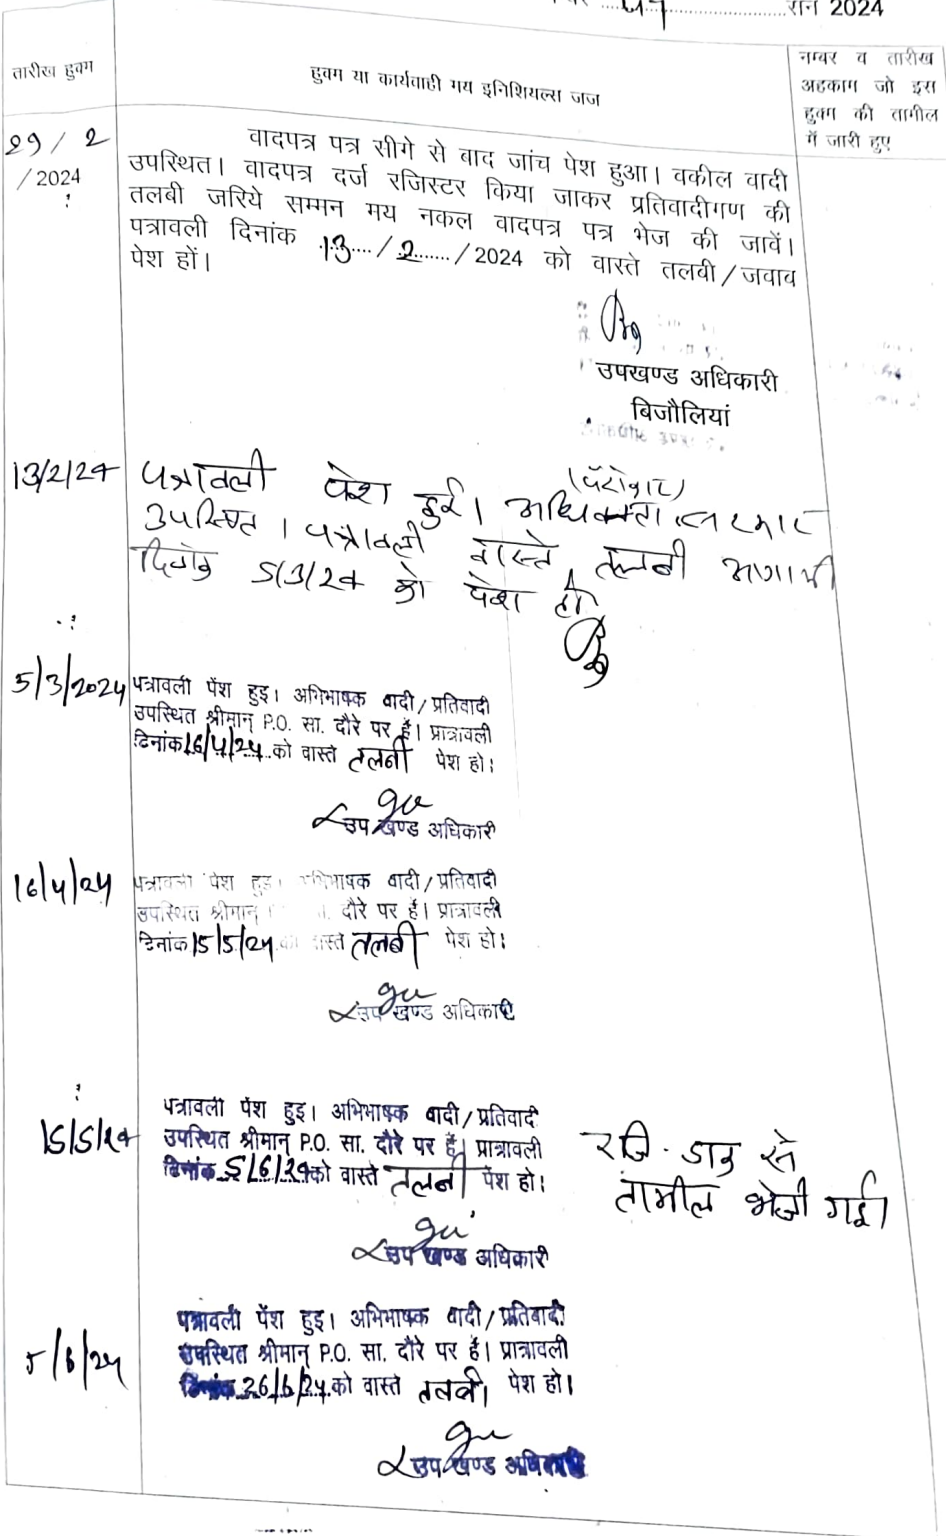 सन 2024
तारीख हुक्म
हुक्म या कार्यवाही मय इनिशियल्स जज
नम्बर व तारीख
अहकाम जो इस
हुक्म की तामील
में जारी हुए
29/2
/2024
वादपत्र पत्र सीगे से बाद जांच पेश हुआ। वकील वादी
उपस्थित। वादपत्र दर्ज रजिस्टर किया जाकर प्रतिवादीगण की
तलबी जरिये सम्मन मय नकल वादपत्र पत्र भेज की जावें।
पत्रावली दिनांक 13/2/2024 को वास्ते तलवी/जवाब
पेश हों।
उपखण्ड अधिकारी
बिजौलियां
13/2/24 पत्रावली पेश हुई। अधिवक्ता (पैरोकार) सरकार
उपस्थित। पत्रावली वास्ते तलबी आगामी
दिनांक 5/3/24 को पेश हो
5/3/2024 पत्रावली पेंश हुइ। अभिभाषक वादी/प्रतिवादी
उपस्थित श्रीमान् P.O. सा. दौरे पर हैं। प्रात्रावली
दिनांक 16/4/24 को वास्ते तलबी पेश हो।
उप खण्ड अधिकारी
16/4/24 पत्रावली पेश हुइ। अभिभाषक वादी/प्रतिवादी
उपस्थित श्रीमान् दौरे पर हैं। प्रात्रावली
दिनांक 15/5/24 को वास्ते तलबी पेश हो।
उप खण्ड अधिकारी
15/5/24 पत्रावली पेंश हुइ। अभिभाषक वादी/प्रतिवादी
उपस्थित श्रीमान् P.O. सा. दौरे पर हैं। प्रात्रावली
दिनांक 5/6/24 को वास्ते तलबी पेश हो।
उप खण्ड अधिकारी
रजि. डाक से
तामील भेजी गई।
5/6/24 पत्रावली पेंश हुइ। अभिभाषक वादी/प्रतिवादी
उपस्थित श्रीमान् P.O. सा. दौरे पर हैं। प्रात्रावली
दिनांक 26/6/24 को वास्ते तलबी पेश हो।
उप खण्ड अधिकारी